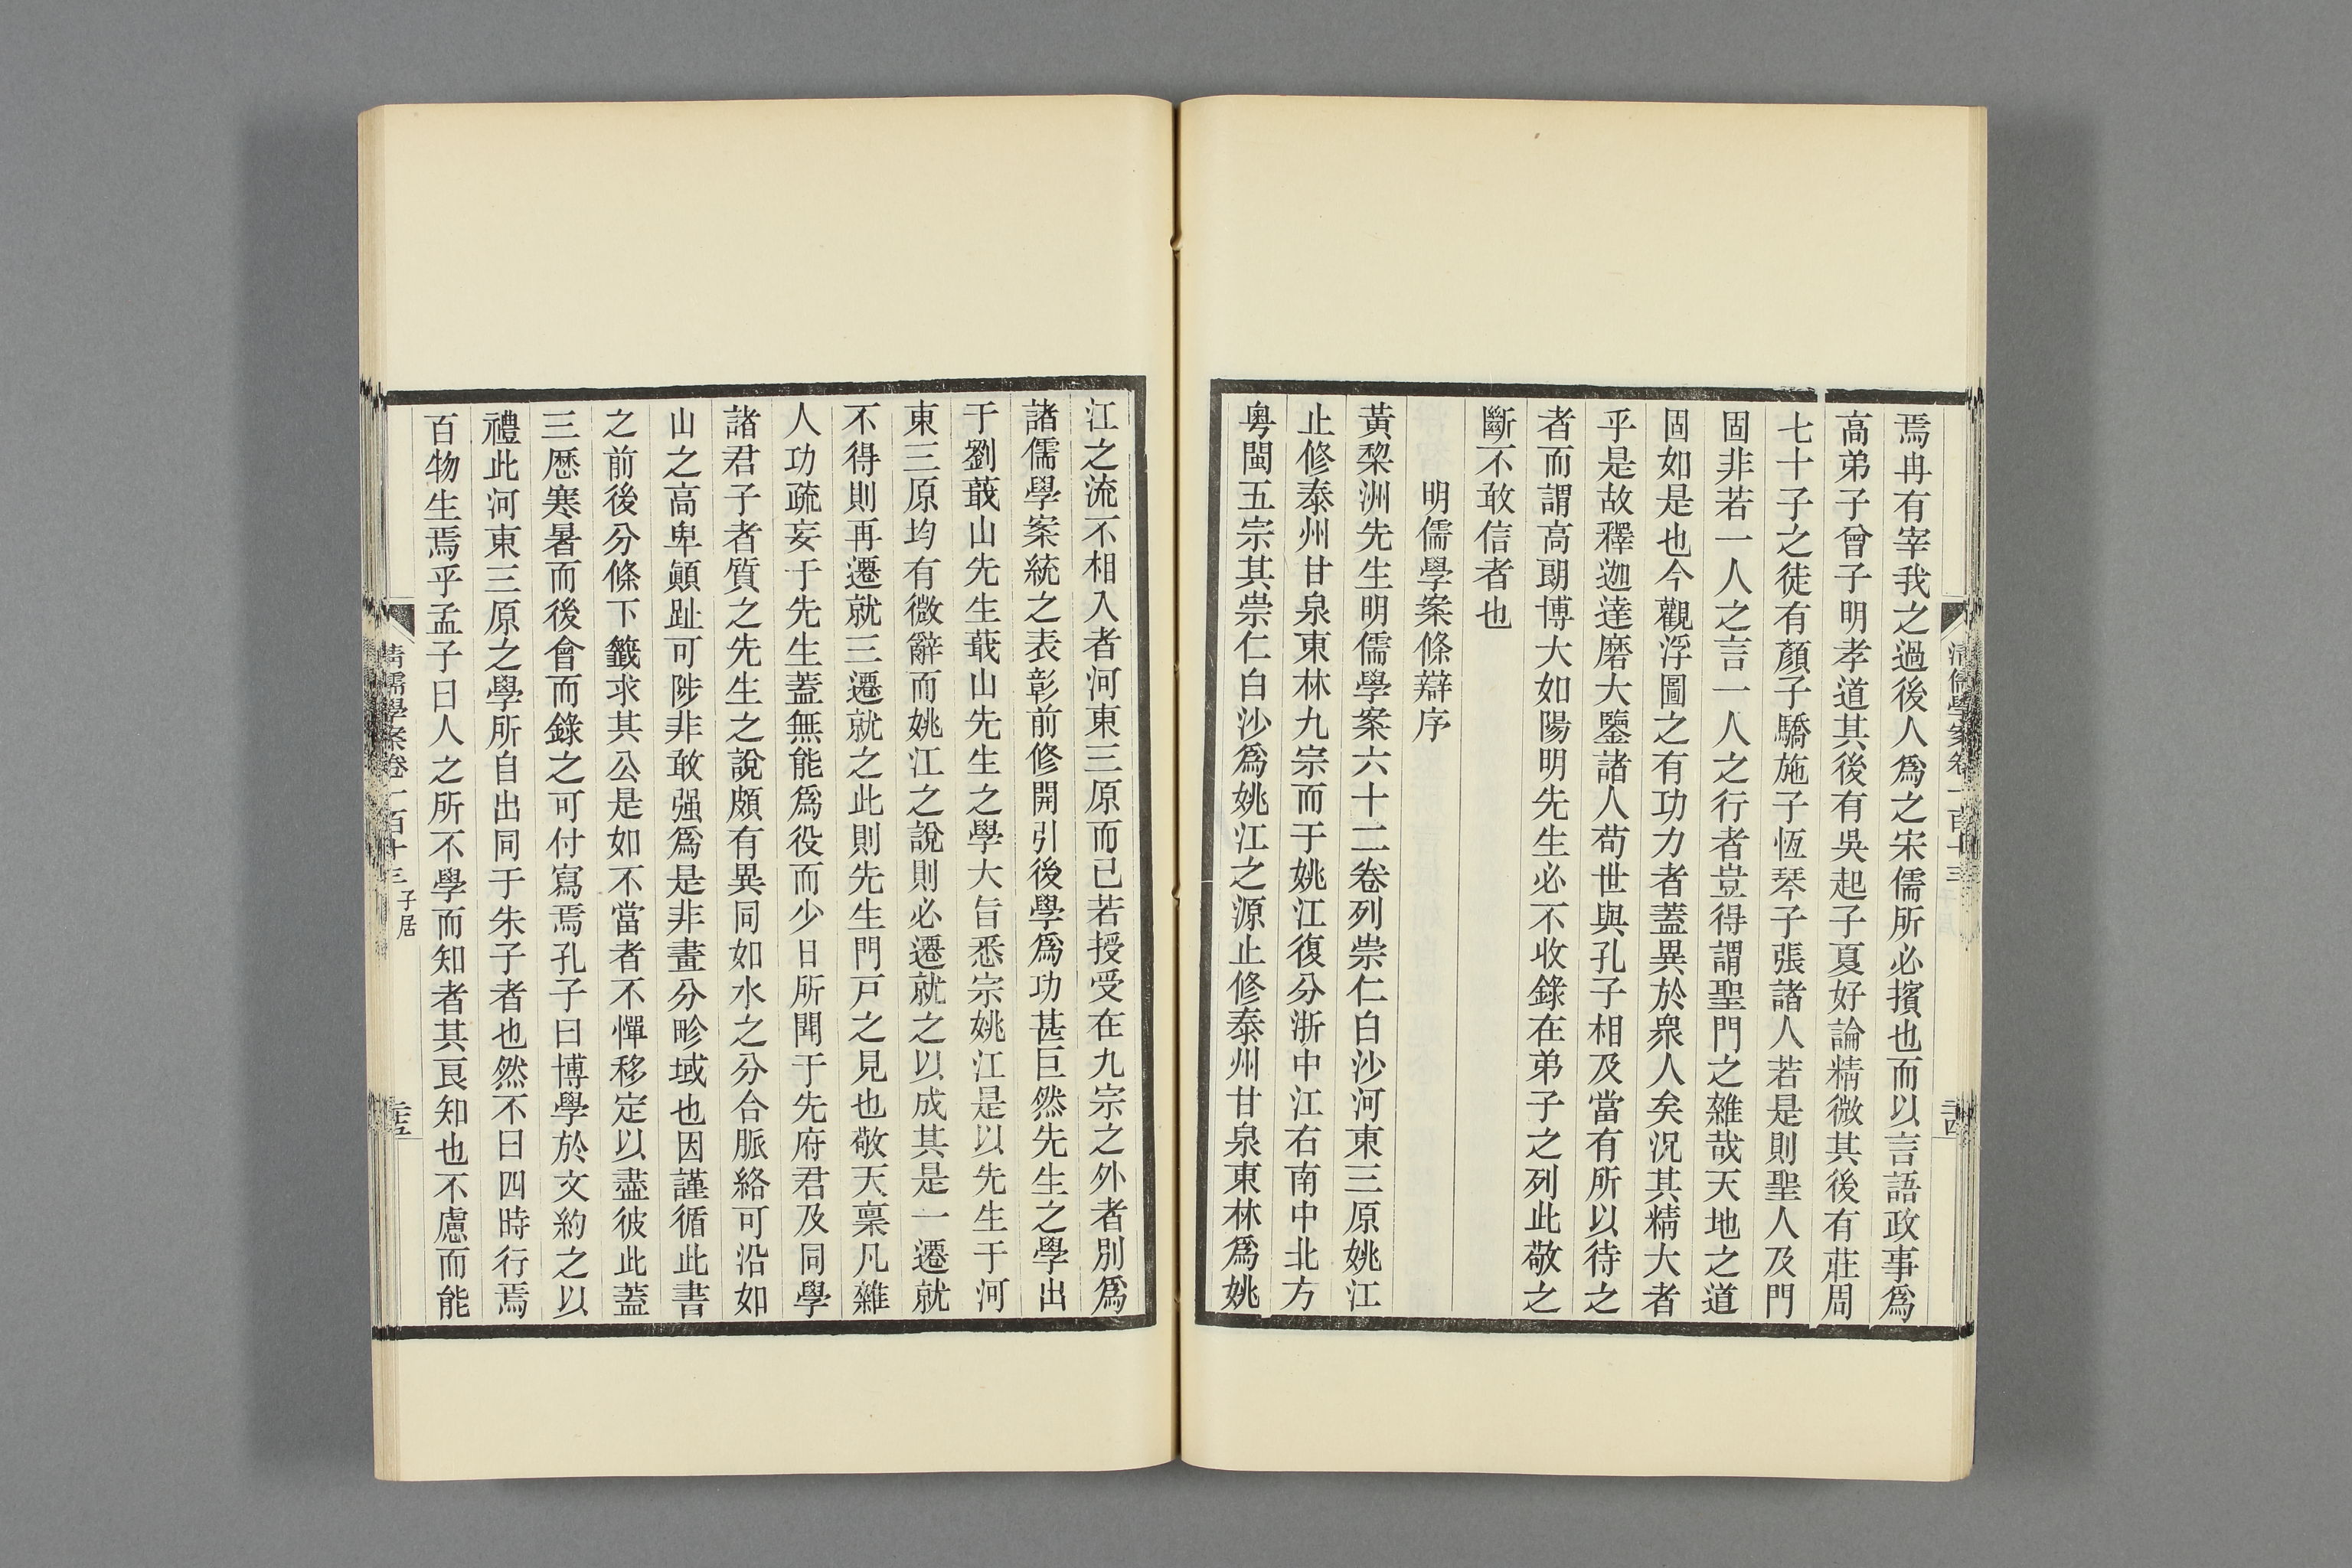 焉冉有宰我之過後人爲之宋儒所必擯也而以言語政事爲
高弟子曾子明孝道其後有吳起子夏好論精微其後有莊周
七十子之徒有顏子驕施子恆琴子張諸人若是則聖人及門
固非若一人之言一人之行者豈得謂聖門之雜哉天地之道
固如是也今觀浮圖之有功力者蓋異於衆人矣況其精大者
乎是故釋迦達磨大鑒諸人苟世與孔子相及當有所以待之
者而謂高朗博大如陽明先生必不收錄在弟子之列此敬之
斷不敢信者也
明儒學案條辯序
黃棃洲先生明儒學案六十二卷列崇仁白沙河東三原姚江
止修泰州甘泉東林九宗而于姚江復分浙中江右南中北方
粵閩五宗其崇仁白沙爲姚江之源止修泰州甘泉東林爲姚
清儒學案卷一百十三
二十四
江之流不相入者河東三原而已若授受在九宗之外者別爲
諸儒學案統之表彰前修開引後學爲功甚巨然先生之學出
于劉蕺山先生蕺山先生之學大旨悉宗姚江是以先生于河
東三原均有微辭而姚江之說則必遷就之以成其是一遷就
不得則再遷就三遷就之此則先生門戸之見也敬天稟凡雜
人功疏妄于先生蓋無能爲役而少日所聞于先府君及同學
諸君子者質之先生之說頗有異同如水之分合脈絡可沿如
山之高卑顚趾可陟非敢强爲是非畫分畛域也因謹循此書
之前後分條下籤求其公是如不當者不憚移定以盡彼此蓋
三歷寒暑而後會而錄之可付寫焉孔子曰博學於文約之以
禮此河東三原之學所自出同于朱子者也然不曰四時行焉
百物生焉乎孟子曰人之所不學而知者其良知也不慮而能
清儒學案卷一百十三 子居
二十五